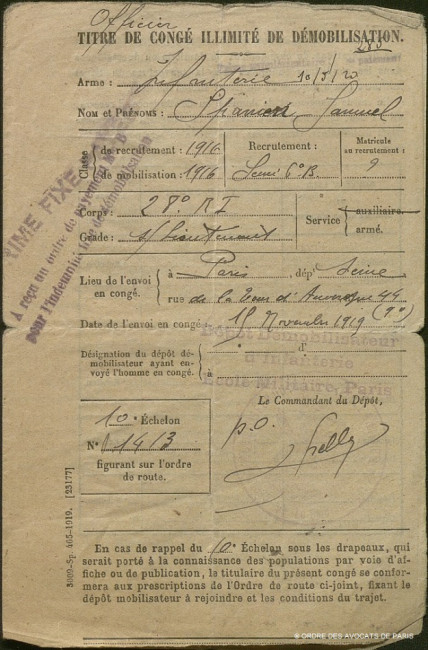 Officier
TITRE DE CONGÉ ILLIMITÉ DE DÉMOBILISATION.
Arme : Infanterie 10/3/20
NOM ET PRÉNOMS : Spanien Samuel
Classe de recrutement : 1916
de mobilisation : 1916
Recrutement :
Seine 6° B.
Matricule
au recrutement :
9
Corps : 28° RI
Grade : s/Lieutenant
Service auxiliaire.
armé.
PRIME FIXE
A reçu un ordre de payement
pour l'indemnité de démobilisation
Lieu de l'envoi
en congé.
à Paris, dépt Seine
rue de la Tour d'Auvergne 44
(9e)
Date de l'envoi en congé : 15 Novembre 1919
Dépôt Démobilisateur
d'Infanterie
École Militaire, Paris
Désignation du dépôt dé-
mobilisateur ayant en-
voyé l'homme en congé.
d'
à
Le Commandant du Dépôt,
p.o.
10° Échelon
N° 1413
figurant sur l'ordre
de route.
En cas de rappel du 10° Échelon sous les drapeaux, qui
serait porté à la connaissance des populations par voie d'af-
fiche ou de publication, le titulaire du présent congé se confor-
mera aux prescriptions de l'Ordre de route ci-joint, fixant le
dépôt mobilisateur à rejoindre et les conditions du trajet.
© ORDRE DES AVOCATS DE PARIS